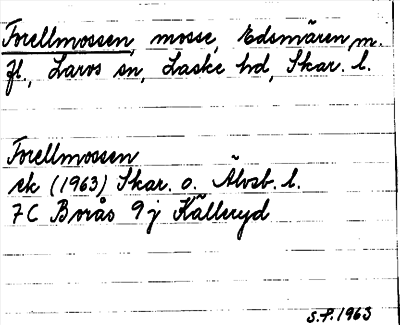 Forellmossen, mosse, Edsmären m.
fl., Larvs sn, Laske hd, Skar. l.
Forellmossen
ek (1963) Skar. o. Älvsb. l.
7C Borås 9j Källeryd
S.P. 1963